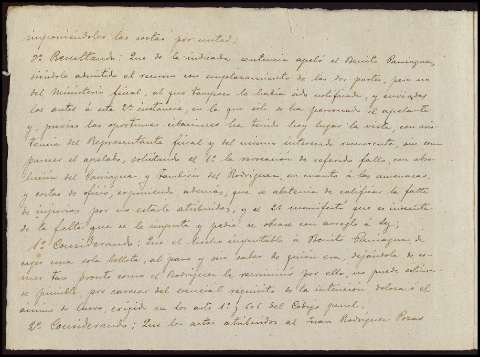 imponiendoles las costas por mitad.
3º Resultando: Que de la indicada sentencia apeló el Benito Paniagua,
siendole admitido el recurso con emplazamiento de las dos partes, pero no
del Ministerio fiscal, al que tampoco le habia sido notificada, y enviados
los autos á esta 2ª instancia, en la que solo se ha personado el apelante
y, previas las oportunas citaciones ha tenido hoy lugar la vista, con asis-
tencia del Representante fiscal y del mismo interesado recurrente, sin com-
parecer el apelado, solicitando el 1º la revocacion de referido fallo, con abso-
lucion del Paniagua y tambien del Rodriguez, en cuanto á las amenazas,
y costas de oficio, exponiendo además, que se abstenia de calificar la falta
de injurias por no estarle atribuidos, y el 2º manifestó que es inocente
de la falta que se le imputa y pedia se obrase con arreglo á ley;
1º Considerando: Que el hecho imputable á Benito Paniagua de
coger una sola bellota, al paso y sin saber de quien era, dejándola de co-
mer tan pronto como el Rodriguez le reconvino por ello, no puede estimar-
se punible, por carecer del esencial requisito de la intencion dolosa ó el
animus de lucro, exigido en los artos 1º y 606 del Codigo penal.
2º Considerando: Que los actos atribuidos al Juan Rodriguez Pozas